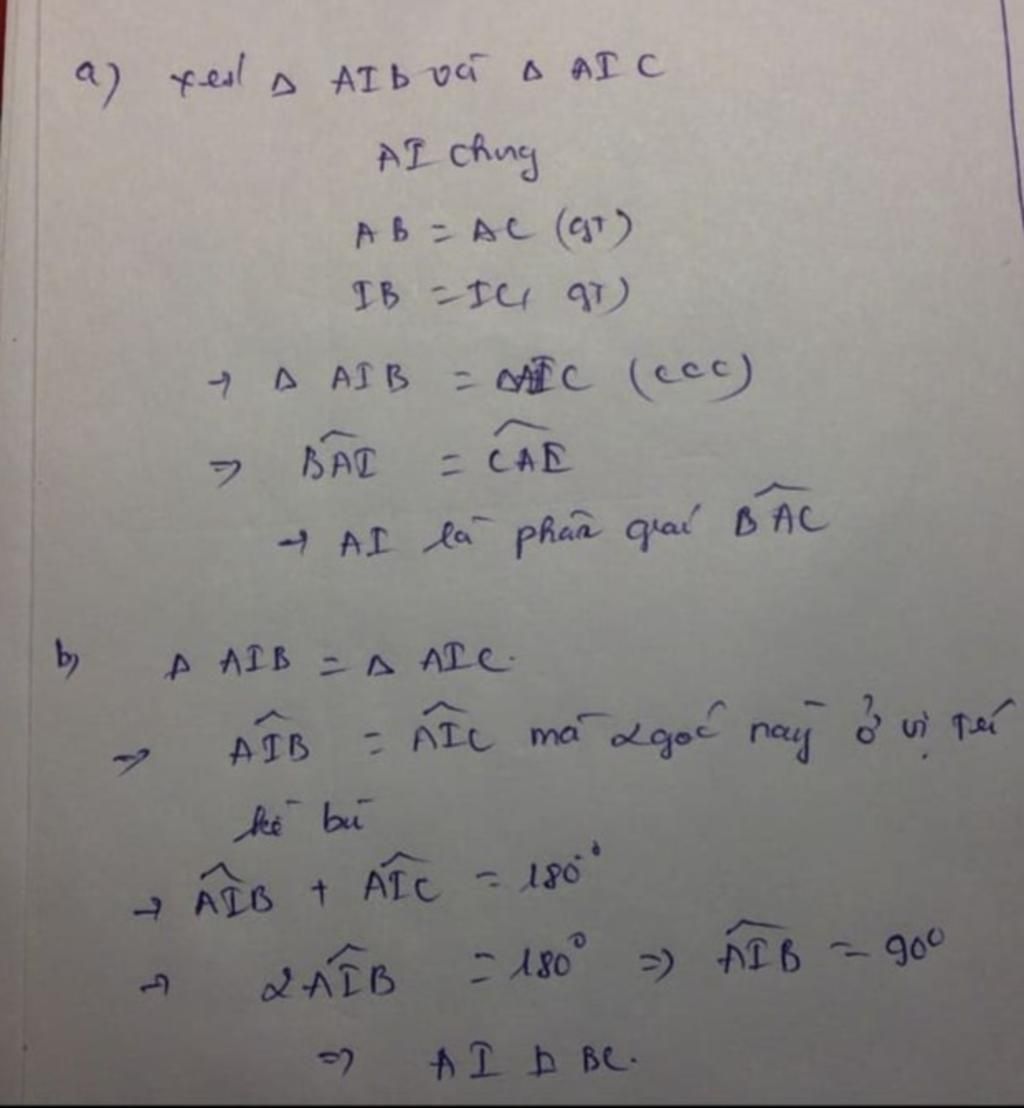 a) xét Δ AIB và Δ AIC
AI chung
AB = AC (gT)
IB = IC( gT)
→ Δ AIB = ΔAIC (ccc)
⇒ \widehat{BAI} = \widehat{CAI}
→ AI là phân giác \widehat{BAC}
b) Δ AIB = Δ AIC.
⇒ \widehat{AIB} = \widehat{AIC} mà 2 góc này ở vị trí
kề bù
→ \widehat{AIB} + \widehat{AIC} = 180°
→ 2\widehat{AIB} = 180° ⇒ \widehat{AIB} = 90°
⇒ AI ⊥ BC.